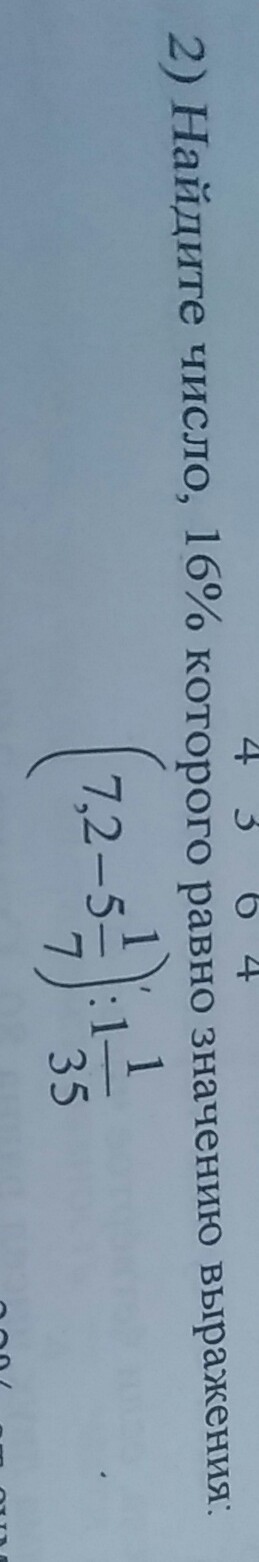 4 3 6 4
2) Найдите число, 16% которого равно значению выражения:
(7,2−5 1/7) : 1 1/35